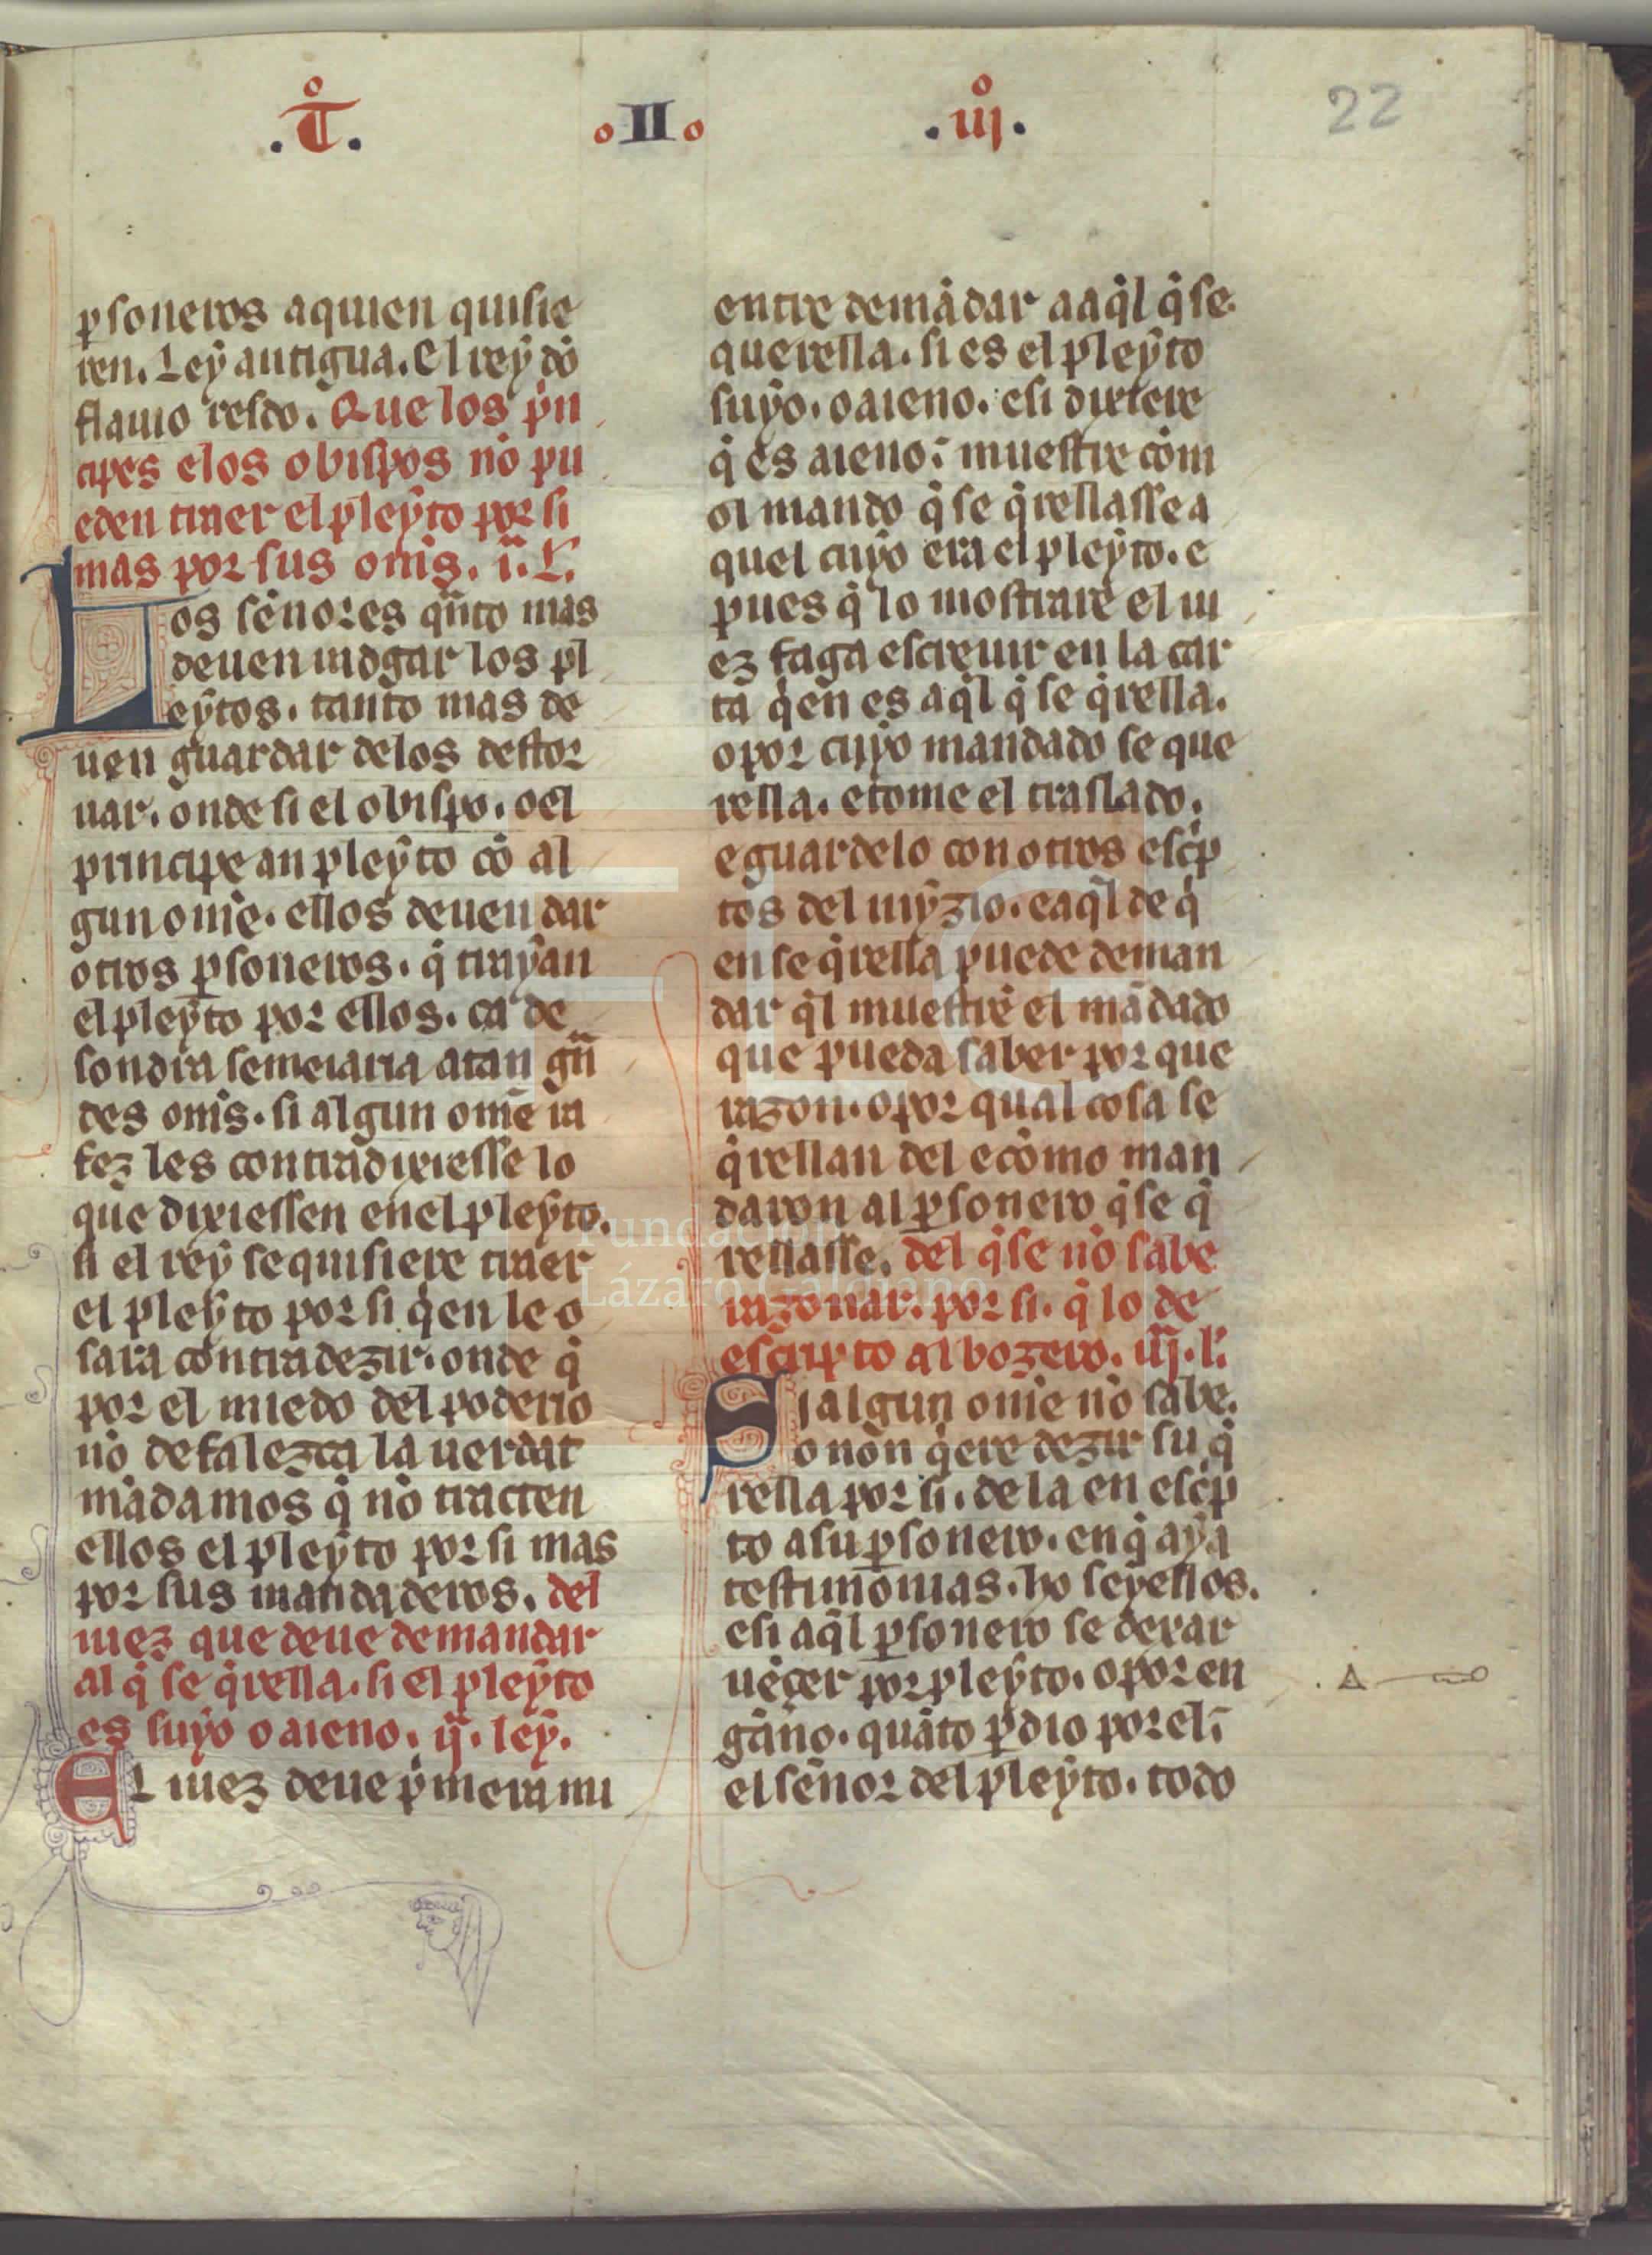 .T̊.
.II.
.iij̊.
22
ꝑsoneros aquien quisie
ren. Ley antigua. El rey dō
flauio resdo. Que los pͥn
cipes elos obispos nō pu
eden tener el pleyto por si
mas por sus om̄s. i. L.
Los sēnores qͣnto mas
deuen iudgar los pl
eytos. tanto mas de
uen guardar delos destor
uar. onde si el obispo. oel
principe an pleyto cō al
gun om̄e. ellos deuen dar
otros ꝑsoneros. q̇ trayan
el pleyto por ellos. ca de
sondra semeiaria atan gͣn
des om̄s. si algun om̄e ra
fez les contradixiesse lo
que dixiessen enel pleyto.
si el rey sequisiere traer
el pleyto por si q̇en le o
sara contradezir. onde q̇
por el miedo del poderio
nō defalezca la uerdat
mādamos q̇ nō tracten
ellos el pleyto por si mas
por sus mandaderos. del
iuez que deue demandar
al q̇ se q̇rella. si el pleyto
es suyo o aieno. ij. ley.
El iuez deue pͥmera mi
entre demādar aaq̇l q̇ se
querella. si es el pleyto
suyo. oaieno. esi dixiere
q̇ es aieno: muestre cōm
ol mando q̇ se q̇rellasse a
quel cuyo era el pleyto. e
pues q̇ lo mostrare el iu
ez faga escreuir en la car
ta q̇en es aq̇l q̇ se q̇rella.
opor cuyo mandado se que
rella. etome el traslado.
eguardelo con otros escͥp
tos del iuyzio. eaq̇l de q̇
en se q̇rella puede deman
dar q̇l muestre el mādado
que pueda saber por que
razon. opor qual cosa se
q̇rellan del ecōmo man
daron al ꝑsonero q̇ se q̇
rellasse. del q̇ se nō sabe
razonar. por si. q̇ lo de
escripto al bozero. iij. l.
Si algun om̄e nō sabe.
o nōn q̇ere dezir su q̇
rella por si. de la en escͥp
to asu ꝑsonero. en q̇ aya
testimōnias. ho seyellos.
esi aq̇l ꝑsonero se dexar
uēçer por pleyto. opor en
gāno. quāto ꝑdio por el:
el sēnor del pleyto. todo